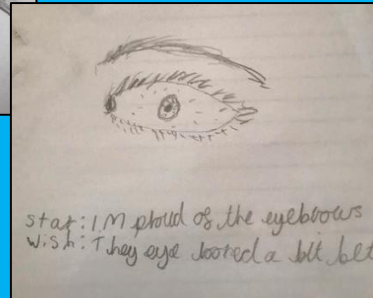 star: I M proud of the eyebrows
wish: They eye looked a bit bet